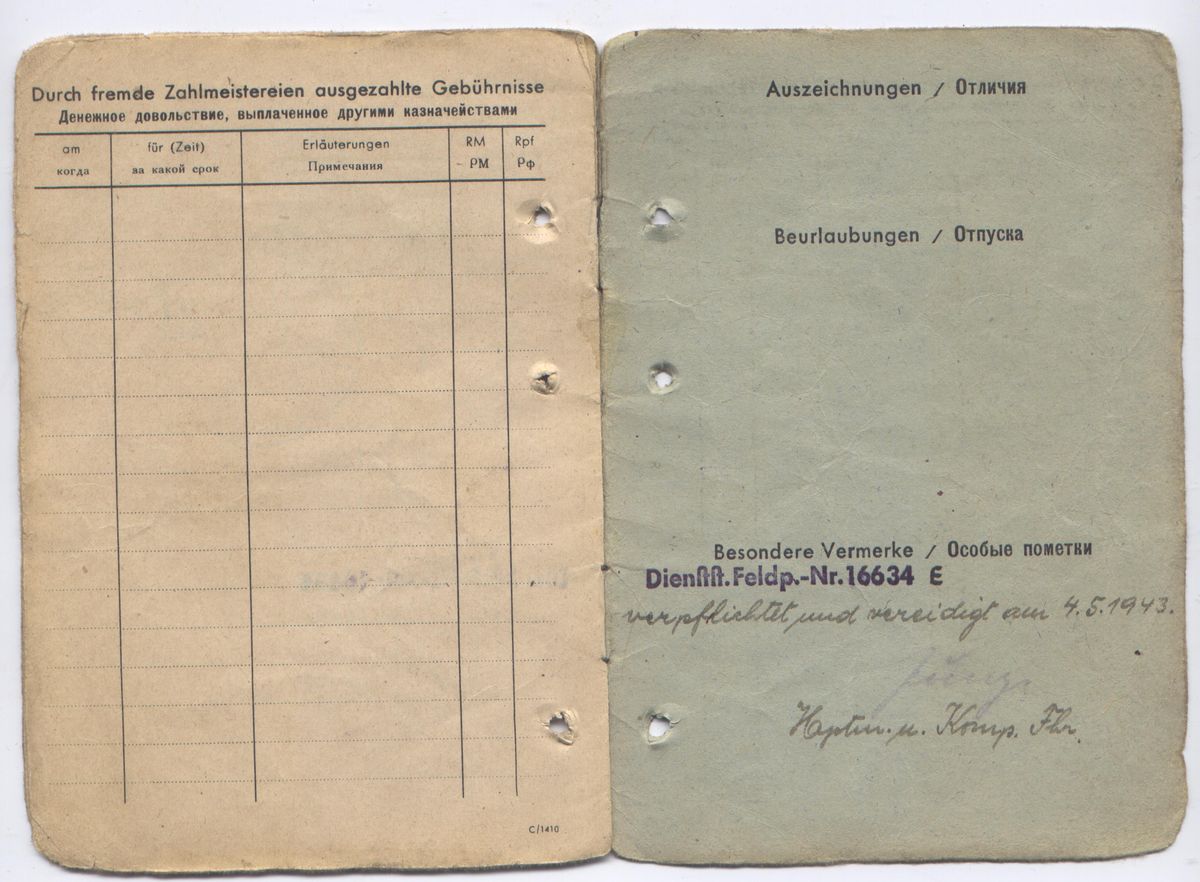 Durch fremde Zahlmeistereien ausgezahlte Gebührnisse
Денежное довольствие, выплаченное другими казначействами
am für (Zeit) Erläuterungen RM Rpf
когда за какой срок Примечания РМ Рф
C/1410
Auszeichnungen / Отличия
Beurlaubungen / Отпуска
Besondere Vermerke / Особые пометки
Dienstst.Feldp.-Nr.16634 E
verpflichtet und vereidigt am 4.5.1943.
Hptm. u. Komp. Fhr.